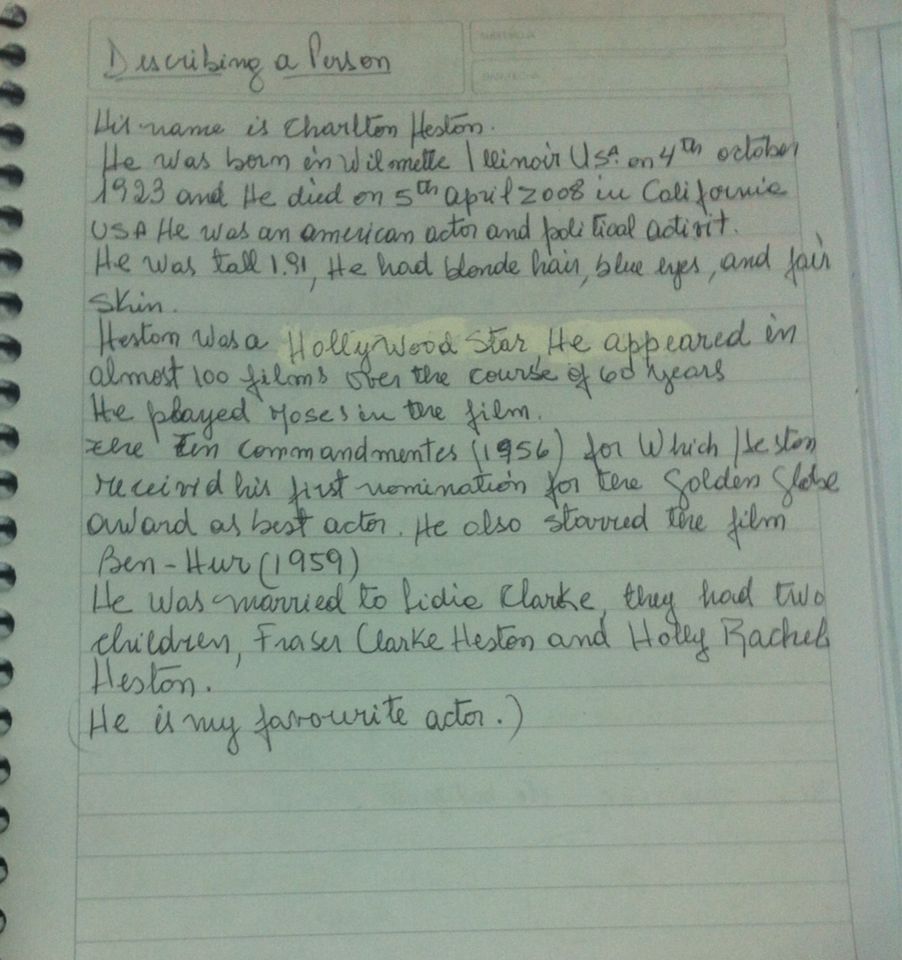 Describing a Person
His name is Charlton Heston.
He was born in Wilmette Illinoir USA. on 4th october
1923 and He died on 5th april 2008 in California
USA He was an american actor and political activit.
He was tall 1.91, He had blonde hair, blue eyes, and fair
skin.
Heston was a Hollywood Star, He appeared in
almost 100 films over the course of 60 years
He played Moses in the film.
the Ten commandmentes (1956) for which Heston
received his first nomination for the Golden Globe
award as best actor. He also starred the film
Ben-Hur (1959)
He was married to Lidia Clarke, they had two
children, Fraser Clarke Heston and Holly Rachel
Heston.
(He is my favourite actor.)